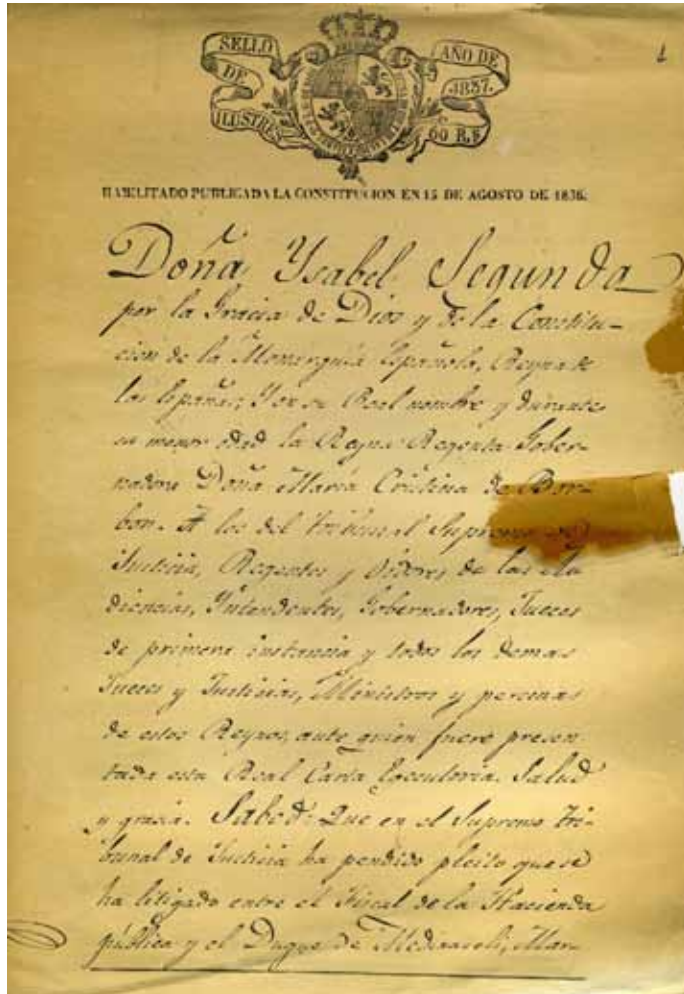 1
SELLO AÑO DE
DE 1837.
ILUSTRES 60 R.S
HABILITADO PUBLICADA LA CONSTITUCION EN 15 DE AGOSTO DE 1836.
Doña Ysabel Segunda
por la Gracia de Dios y de la Constitu-
cion de la Monarquía Española, Reyna de
las Españas; Y en su Real nombre y durante
su menor edad la Reyna Regenta Gober-
nadora Doña María Cristina de Bor-
bon. A los del Tribunal Supremo de
Justicia, Regentes y Oidores de las Au
diencias, Yntendentes, Gobernadores, Jueces
de primera instancia y todos los demas
Jueces y Justicias, Ministros y personas
de estos Reynos, ante quien fuere presen
tada esta Real Carta Egecutoria. Salud
y gracia. Sabed: Que en el Supremo Tri-
bunal de Justicia ha pendido pleito que se
ha litigado entre el Fiscal de la Hacienda
pública y el Duque de Medinaceli, Mar-